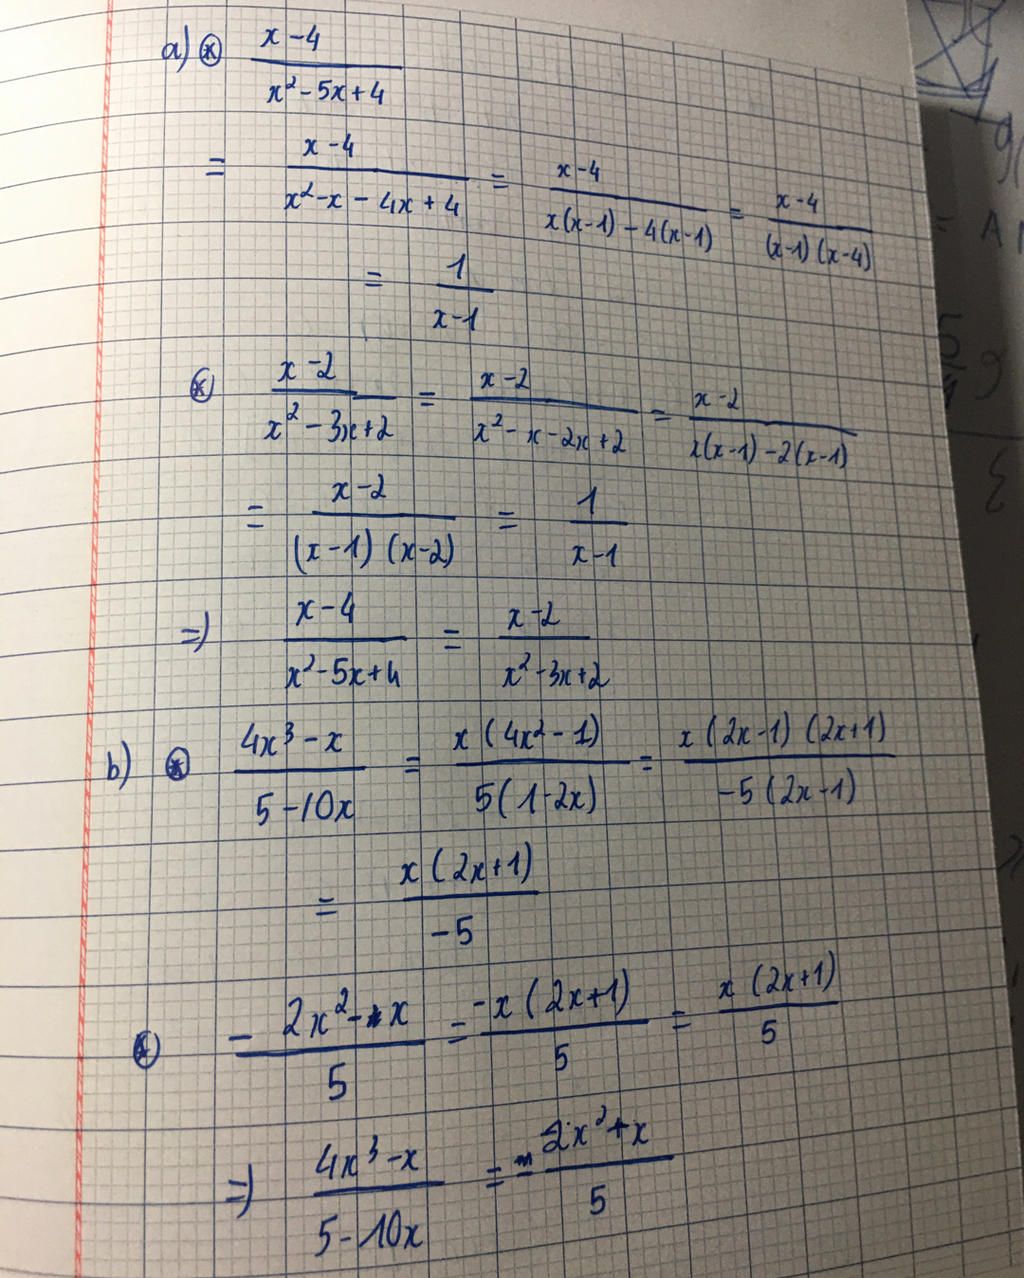 a) * x-4 / x²-5x+4
= x-4 / x²-x-4x+4 = x-4 / x(x-1)-4(x-1) = x-4 / (x-1)(x-4)
= 1 / x-1
* x-2 / x²-3x+2 = x-2 / x²-x-2x+2 = x-2 / x(x-1)-2(x-1)
= x-2 / (x-1)(x-2) = 1 / x-1
=) x-4 / x²-5x+4 = x-2 / x²-3x+2
b) * 4x³-x / 5-10x = x(4x²-1) / 5(1-2x) = x(2x-1)(2x+1) / -5(2x-1)
= x(2x+1) / -5
* -2x²-x / 5 = -x(2x+1) / 5 = x(2x+1) / 5
=) 4x³-x / 5-10x = - 2x²+x / 5